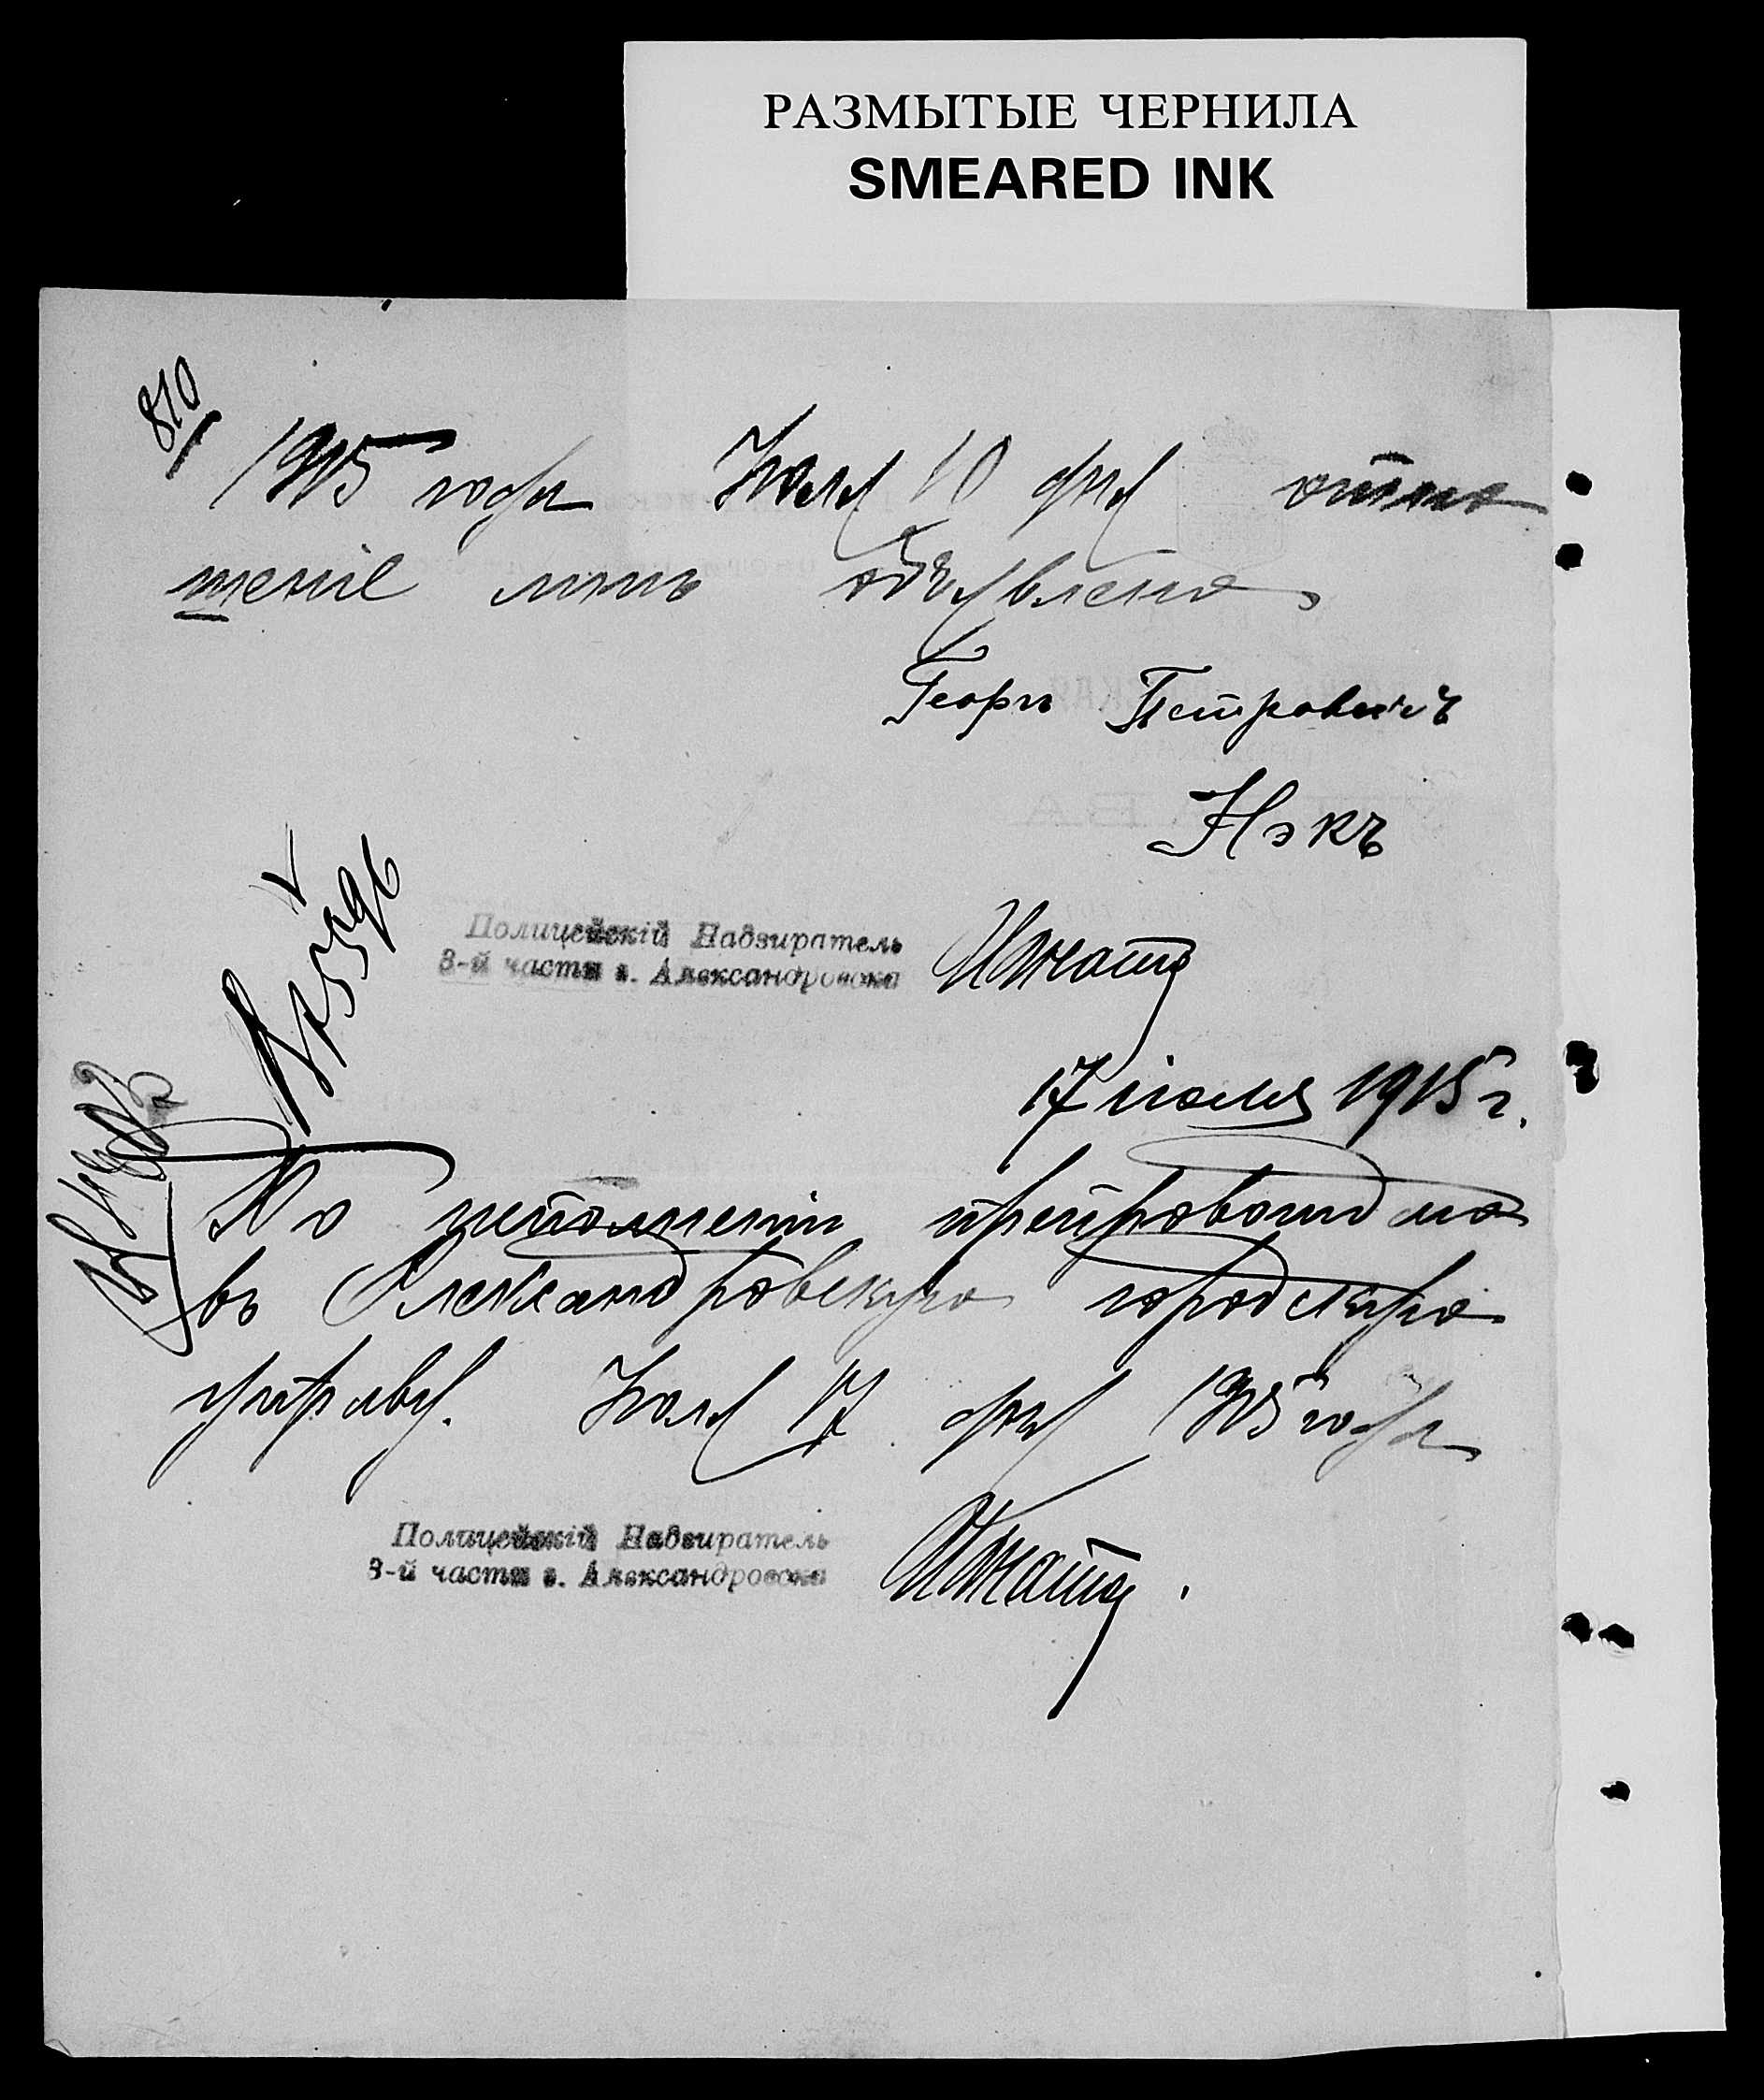 РАЗМЫТЫЕ ЧЕРНИЛА
SMEARED INK
810
1915 года Іюля 10 дня отно
шеніе мнѣ объявлено
Георгъ Петровичъ
Нэкъ
Полицейскій Надзиратель
3-й части г. Александровска
17 іюля 1915 г.
По исполненіи препровождаю
въ Александровскую городскую
управу. Іюля 17 дня 1915 года
Полицейскій Надзиратель
3-й части г. Александровска